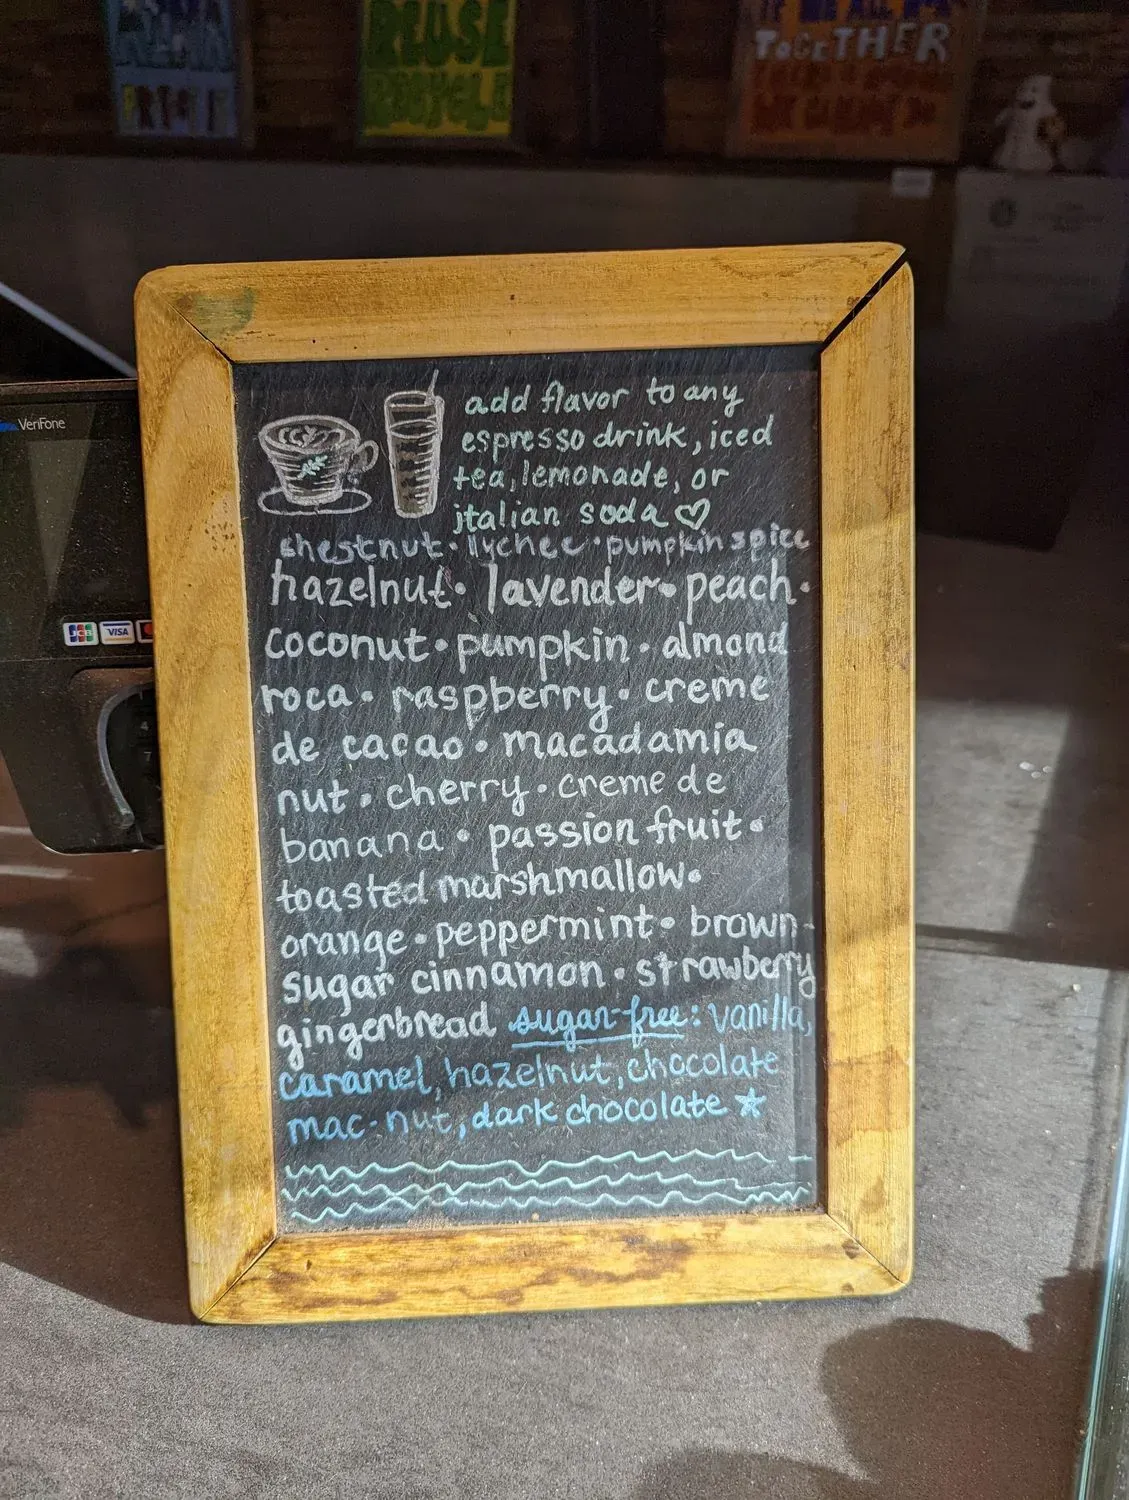 REUSE
RECYCLE
TOGETHER
VeriFone
JCB
VISA
add flavor to any
espresso drink, iced
tea, lemonade, or
italian soda ♡
chestnut · lychee · pumpkin spice
hazelnut · lavender · peach ·
coconut · pumpkin · almond
roca · raspberry · creme
de cacao · macadamia
nut · cherry · creme de
banana · passion fruit ·
toasted marshmallow ·
orange · peppermint · brown-
sugar cinnamon · strawberry
gingerbread sugar-free: vanilla,
caramel, hazelnut, chocolate
mac-nut, dark chocolate ☆